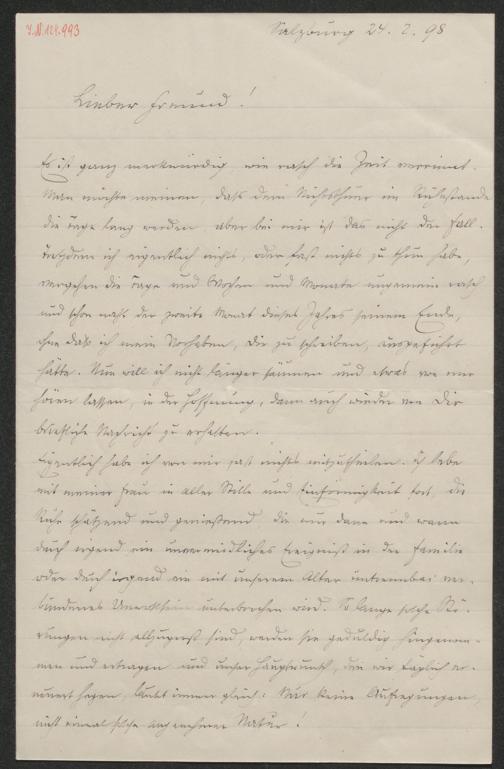 I.N. 121.993
Salzburg 24. 2. 98
Lieber Freund!
Es ist ganz merkwürdig, wie rasch die Zeit verrinnt.
Man möchte meinen, daß dem Nichtsthuer im Ruhestande
die Tage lang werden, aber bei mir ist das nicht der Fall.
Trotzdem ich eigentlich nichts, oder fast nichts zu thun habe,
vergehen die Tage und Wochen und Monate ungemein rasch
und schon naht der zweite Monat dieses Jahres seinem Ende,
ohne daß ich mein Vorhaben, Dir zu schreiben, ausgeführt
hätte. Nun will ich nicht länger säumen und etwas von mir
hören lassen, in der Hoffnung, dann auch wieder von Dir
briefliche Nachricht zu erhalten.
Eigentlich habe ich von mir fast nichts mitzutheilen. Ich lebe
mit meiner Frau in aller Stille und Einförmigkeit fort, die
Ruhe schätzend und genießend, die nur dann und wann
durch irgend ein unvermeidliches Ereigniß in der Familie
oder durch irgend ein mit unserem Alter untrennbar ver-
bundenes Unwohlsein unterbrochen wird. So lange solche Stö-
rungen nicht allzuernst sind, werden sie geduldig hingenom-
men und ertragen und unser Hauptwunsch, den wir täglich er-
neuert hegen, bleibt immer gleich: Nur keine Aufregungen,
nicht einmal solche angenehmer Natur!